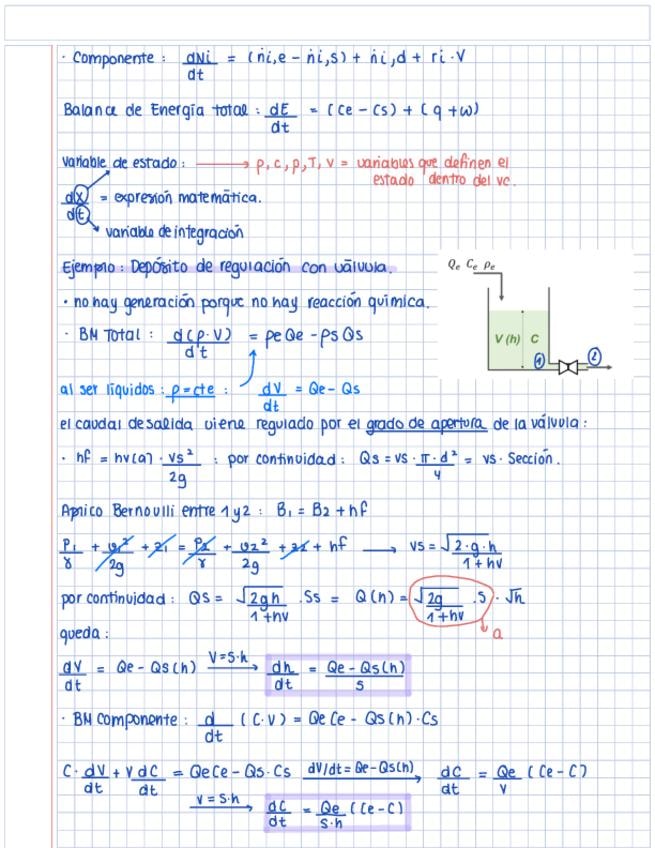 · Componente : dNi/dt = (ṅi,e - ṅi,s) + ṅi,d + ri·V
Balance de Energía total : dE/dt = (Ce - Cs) + (q + w)
Variable de estado : → ρ, c, p, T, V = variables que definen el
estado dentro del vc.
d(X)/d(t) = expresión matemática.
variable de integración
Ejemplo : Depósito de regulación con válvula.
Qe Ce ρe
· no hay generación porque no hay reacción química.
· BM Total : d(ρ·V)/dt = ρe Qe - ρs Qs
V (h) C
1 2
al ser líquidos : ρ = cte : dV/dt = Qe - Qs
el caudal de salida viene regulado por el grado de apertura de la válvula :
· hf = hv(a) · vs²/2g : por continuidad : Qs = vs · π·d²/4 = vs · Sección.
Aplico Bernoulli entre 1 y 2 : B1 = B2 + hf
P1/γ + v1²/2g + z1 = P2/γ + v2²/2g + z2 + hf → vs = √2·g·h/1+hv
por continuidad : QS = √2gh/1+hv .Ss = Q(h) = √2g/1+hv .S · √h
queda :
a
dV/dt = Qe - Qs(h) V=S·h → dh/dt = Qe - Qs(h)/S
· BM componente : d/dt (C·V) = Qe Ce - Qs(h)·Cs
C· dV/dt + V dC/dt = Qe Ce - Qs·Cs dV/dt = Qe - Qs(h) → dC/dt = Qe/V (Ce - C)
V = S·h → dC/dt = Qe/S·h (Ce - C)